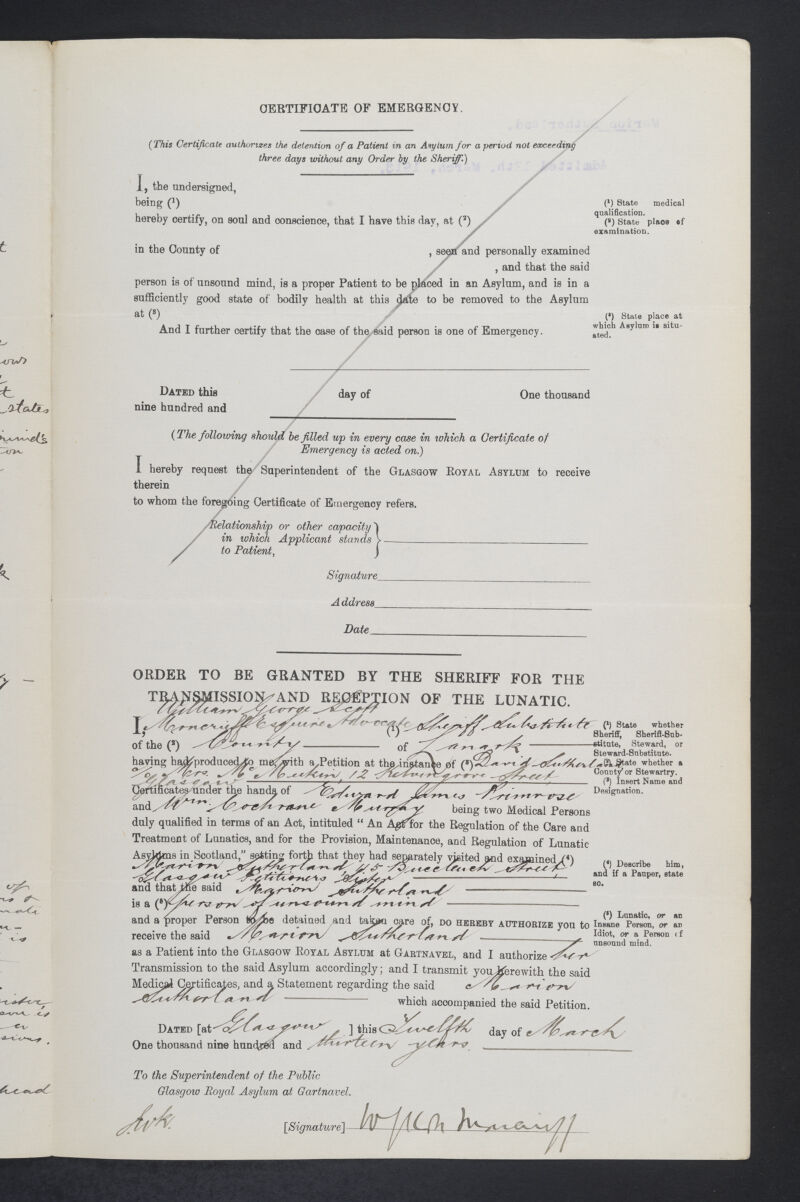 CERTIFICATE OF EMERGENCY.
(This Certificate authorizes the detention of a Patient in an Asylum for a period not exceeding
three days without any Order by the Sheriff.)
I, the undersigned,
being (¹)
hereby certify, on soul and conscience, that I have this day, at (²)
in the County of , seen and personally examined
, and that the said
person is of unsound mind, is a proper Patient to be placed in an Asylum, and is in a
sufficiently good state of bodily health at this date to be removed to the Asylum
at (³)
And I further certify that the case of the said person is one of Emergency.
(¹) State medical
qualification.
(²) State place of
examination.
(³) State place at
which Asylum is situ-
ated.
DATED this day of One thousand
nine hundred and
(The following should be filled up in every case in which a Certificate of
Emergency is acted on.)
I hereby request the Superintendent of the GLASGOW ROYAL ASYLUM to receive
therein
to whom the foregoing Certificate of Emergency refers.
Relationship or other capacity
in which Applicant stands
to Patient,
Signature
Address
Date
ORDER TO BE GRANTED BY THE SHERIFF FOR THE
TRANSMISSION AND RECEPTION OF THE LUNATIC.
William George Scott
I, Moncrieff Esquire Advocate (¹) Sheriff Substitute
of the (²) County of Lanark
having had produced to me, with a Petition at the instance of (³) David Sutherland
c/o Mrs. McMeekin, 12 Kelvingrove Street
Glasgow
Certificates under the hands of Edward James Primrose
and Wm. Cochrane Murray being two Medical Persons
duly qualified in terms of an Act, intituled "An Act for the Regulation of the Care and
Treatment of Lunatics, and for the Provision, Maintenance, and Regulation of Lunatic
Asylums in Scotland," setting forth that they had separately visited and examined (⁴)
Marion Sutherland, 45 Buccleuch Street,
Glasgow Petitioners Sister
and that the said Marion Sutherland
is a (⁵) person of unsound mind
and a proper Person to be detained and taken care of, DO HEREBY AUTHORIZE you to
receive the said Marion Sutherland
as a Patient into the GLASGOW ROYAL ASYLUM at GARTNAVEL, and I authorize her
Transmission to the said Asylum accordingly; and I transmit you herewith the said
Medical Certificates, and a Statement regarding the said Marion
Sutherland which accompanied the said Petition.
(¹) State whether
Sheriff, Sheriff-Sub-
stitute, Steward, or
Steward-Substitute.
(²) State whether a
County or Stewartry.
(³) Insert Name and
Designation.
(⁴) Describe him,
and if a Pauper, state
so.
(⁵) Lunatic, or an
Insane Person, or an
Idiot, or a Person of
unsound mind.
DATED [at Glasgow ] this Twelfth day of March
One thousand nine hundred and thirteen years.
To the Superintendent of the Public
Glasgow Royal Asylum at Gartnavel.
[Signature]